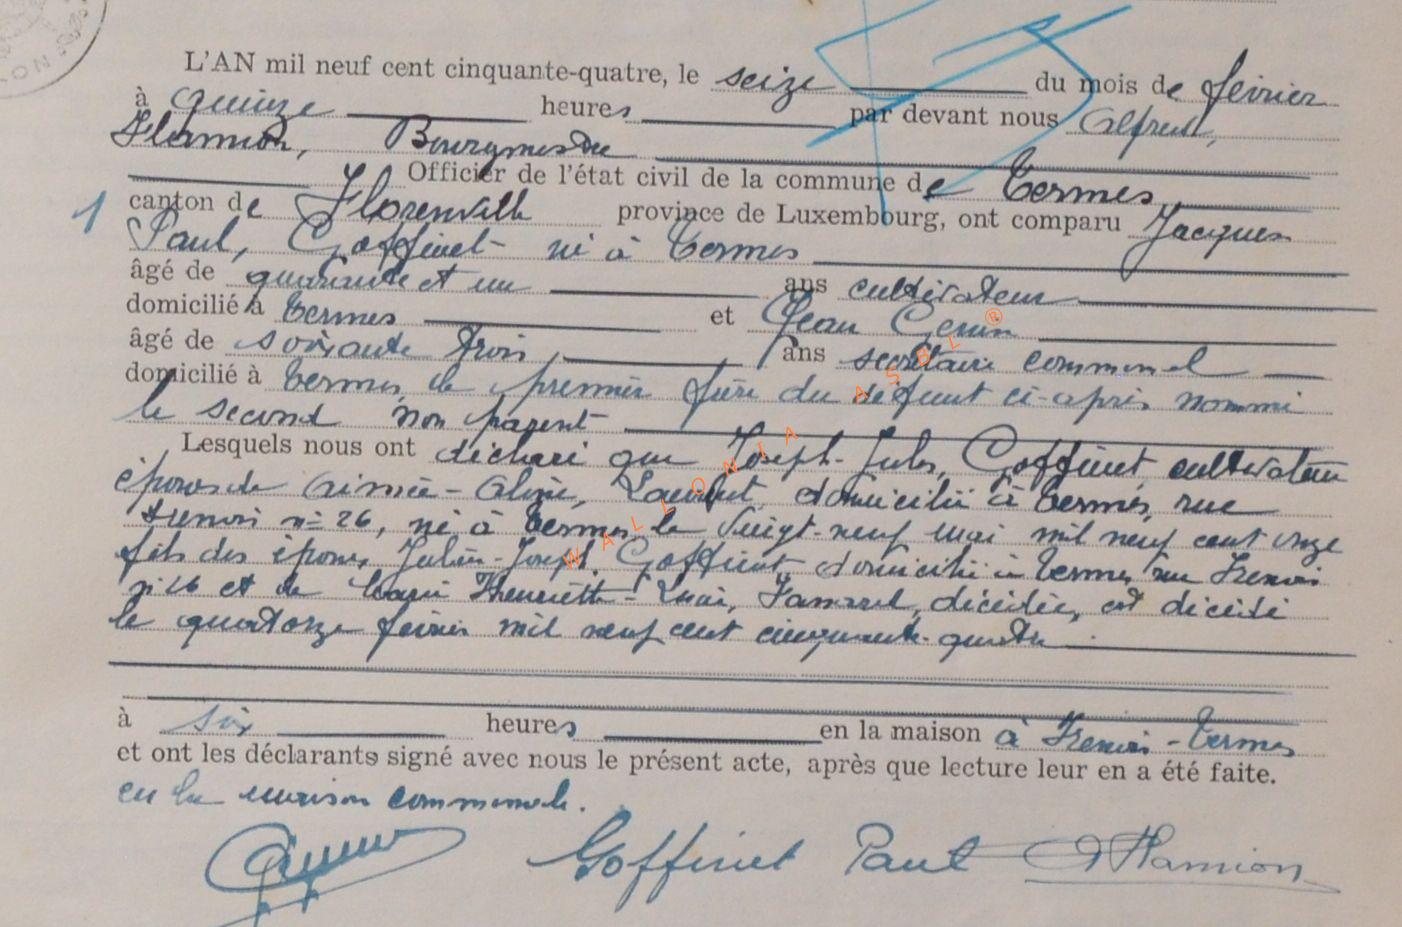 L'AN mil neuf cent cinquante-quatre, le seize du mois de février
à quinze heures par devant nous Alfred,
Hamion, Bourgmestre
Officier de l'état civil de la commune de Termes
canton de Florenville province de Luxembourg, ont comparu Jacques
Paul, Goffinet né à Termes
âgé de quarante et un ans cultivateur
domicilié à Termes et Jean
âgé de soixante trois, ans secrétaire communal
domicilié à Termes, le premier frère du défunt ci-après nommé
le second non parent
Lesquels nous ont déclaré que Joseph-Jules, Goffinet, cultivateur
époux de Aimée-Aline, domicilié à Termes, rue
Frenois n° 26, né à Termes le vingt-neuf mai mil neuf cent onze
fils des époux, Julien-Joseph, Goffinet domicilié à Termes rue Frenois
n° 26 et de Marie Henriette- décédée, est décédé
le quatorze février mil neuf cent cinquante-quatre
à six heures en la maison à Frenois-Termes
et ont les déclarants signé avec nous le présent acte, après que lecture leur en a été faite.
en la maison communale.
Goffinet Paul AHamion
1
WALLONIA ASBL ®